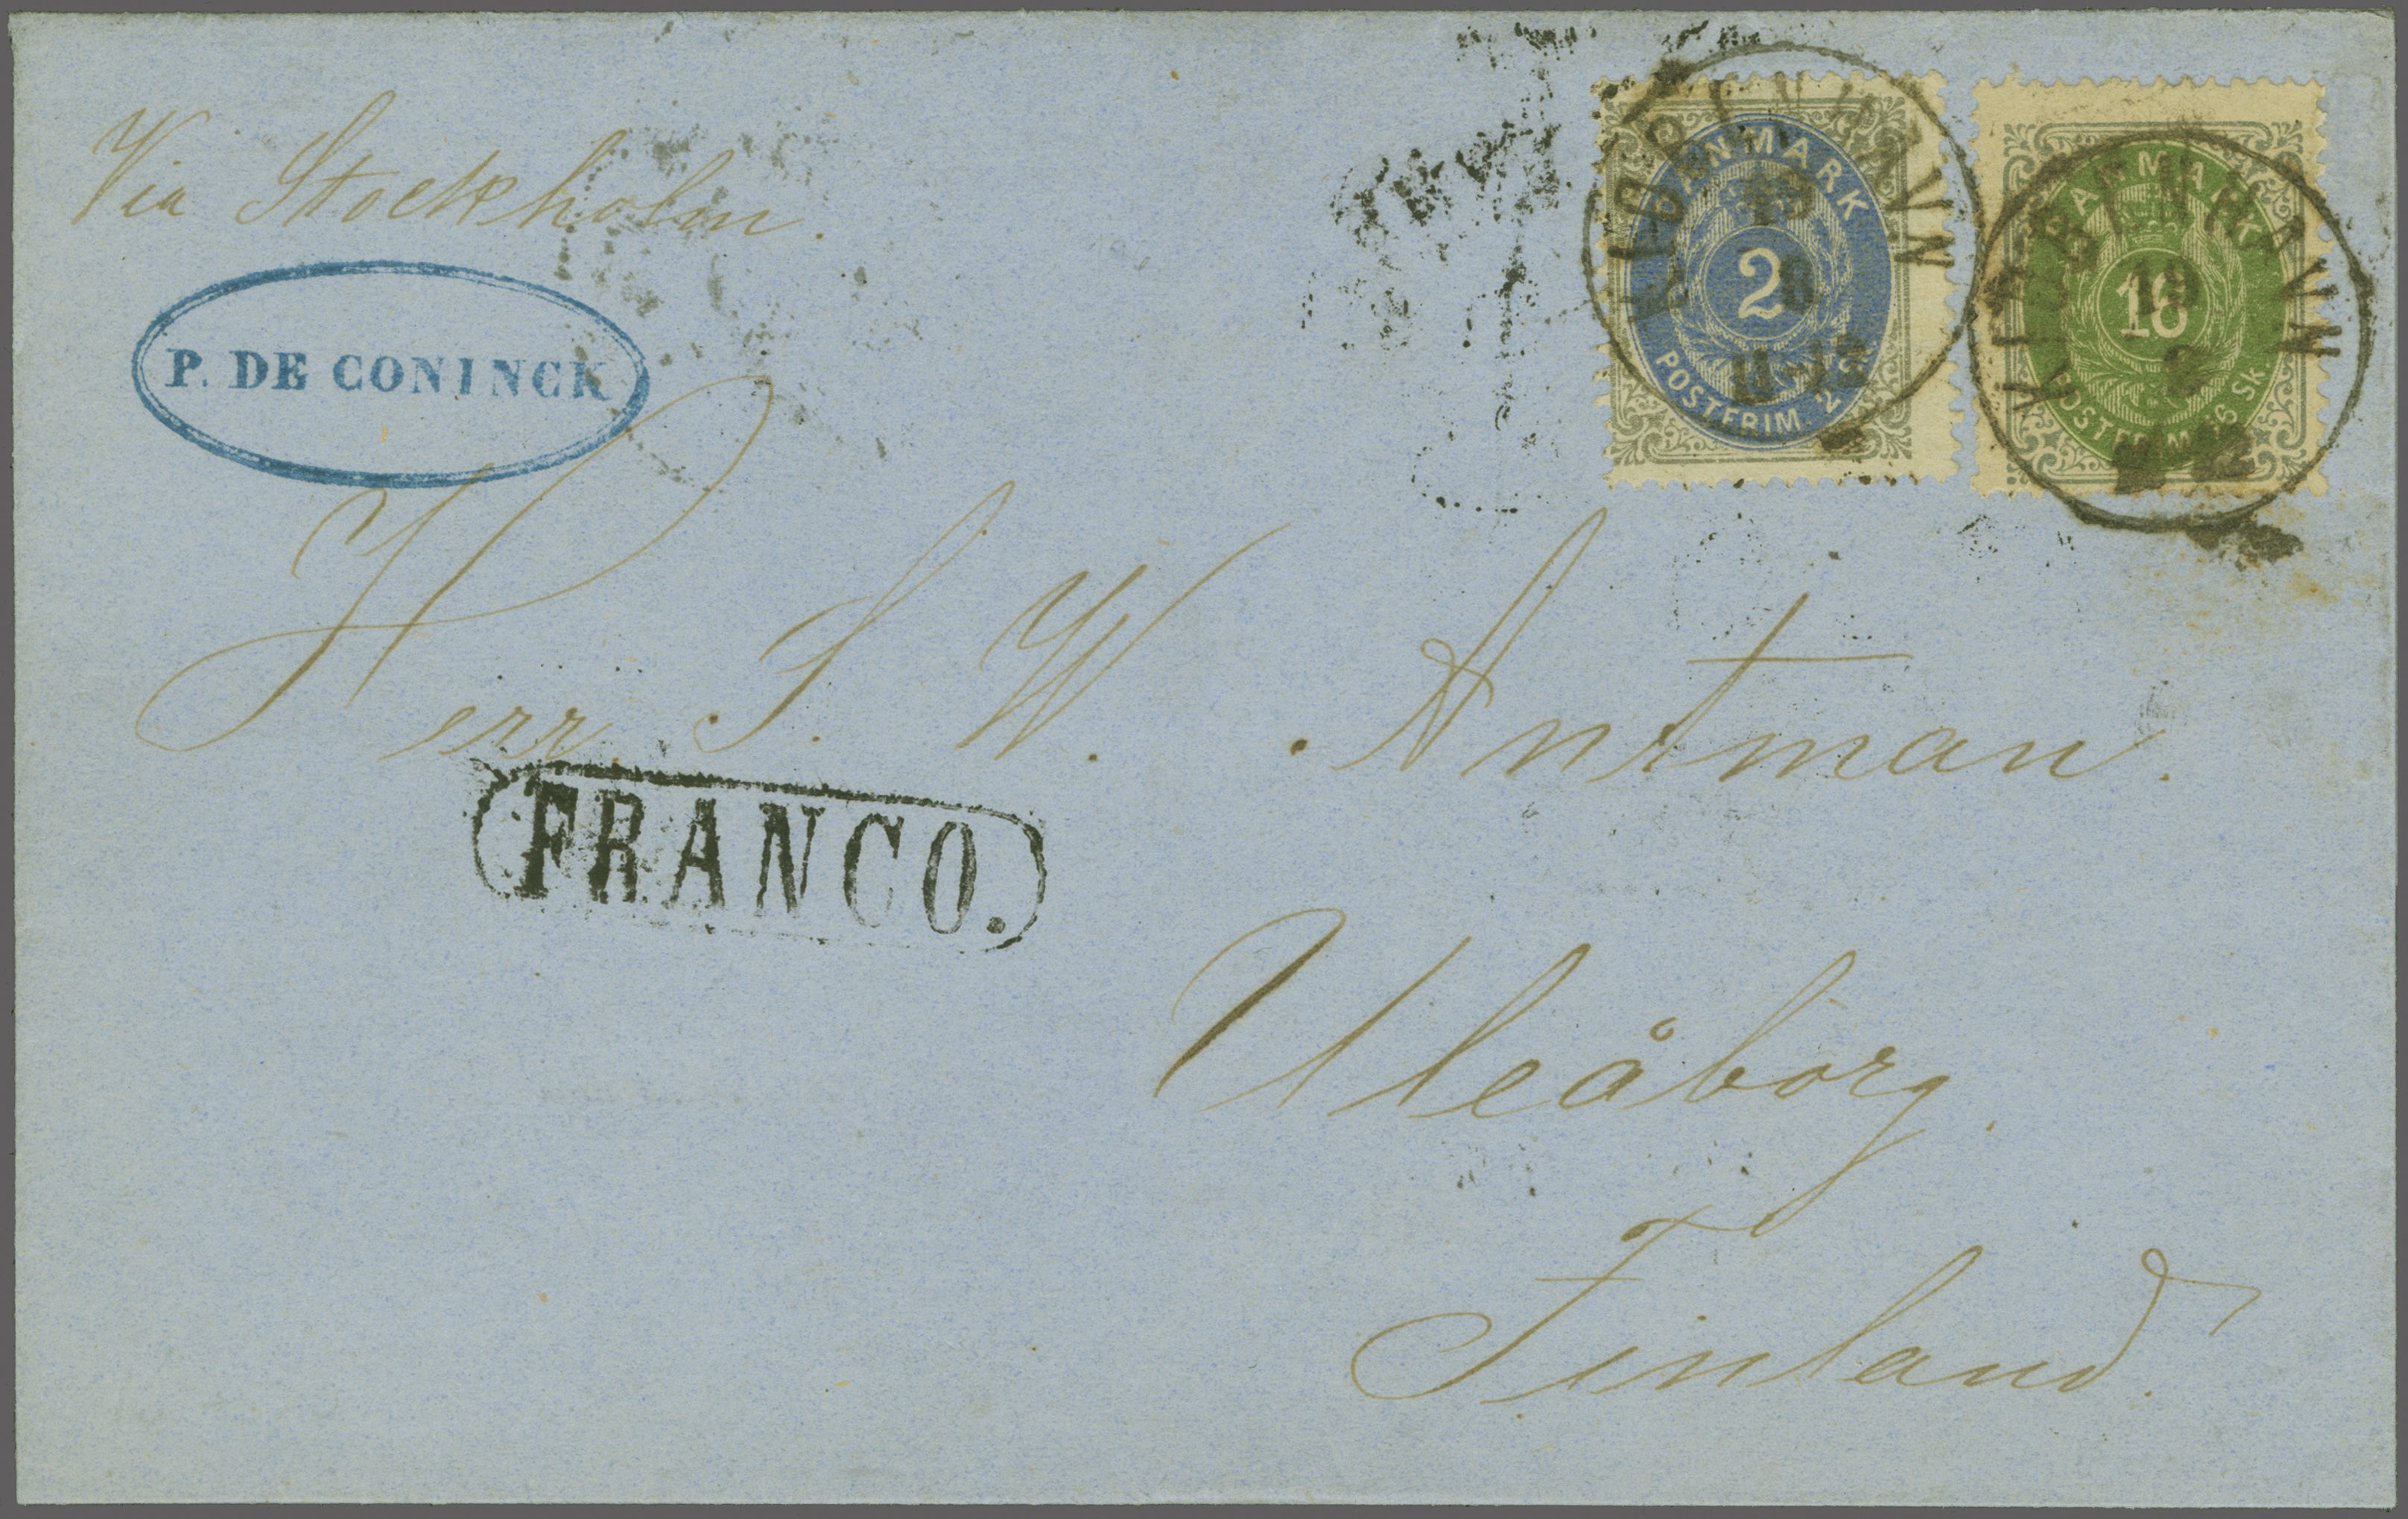 Via Stockholm.
P. DE CONINCK
DANMARK
2
POSTFRIM. 2
KIØBENHAVN
DANMARK
16
POSTFRIM. 16 Sk.
KIØBENHAVN
19
Herr S. W. Antman.
FRANCO.
Uleåborg.
Finland.